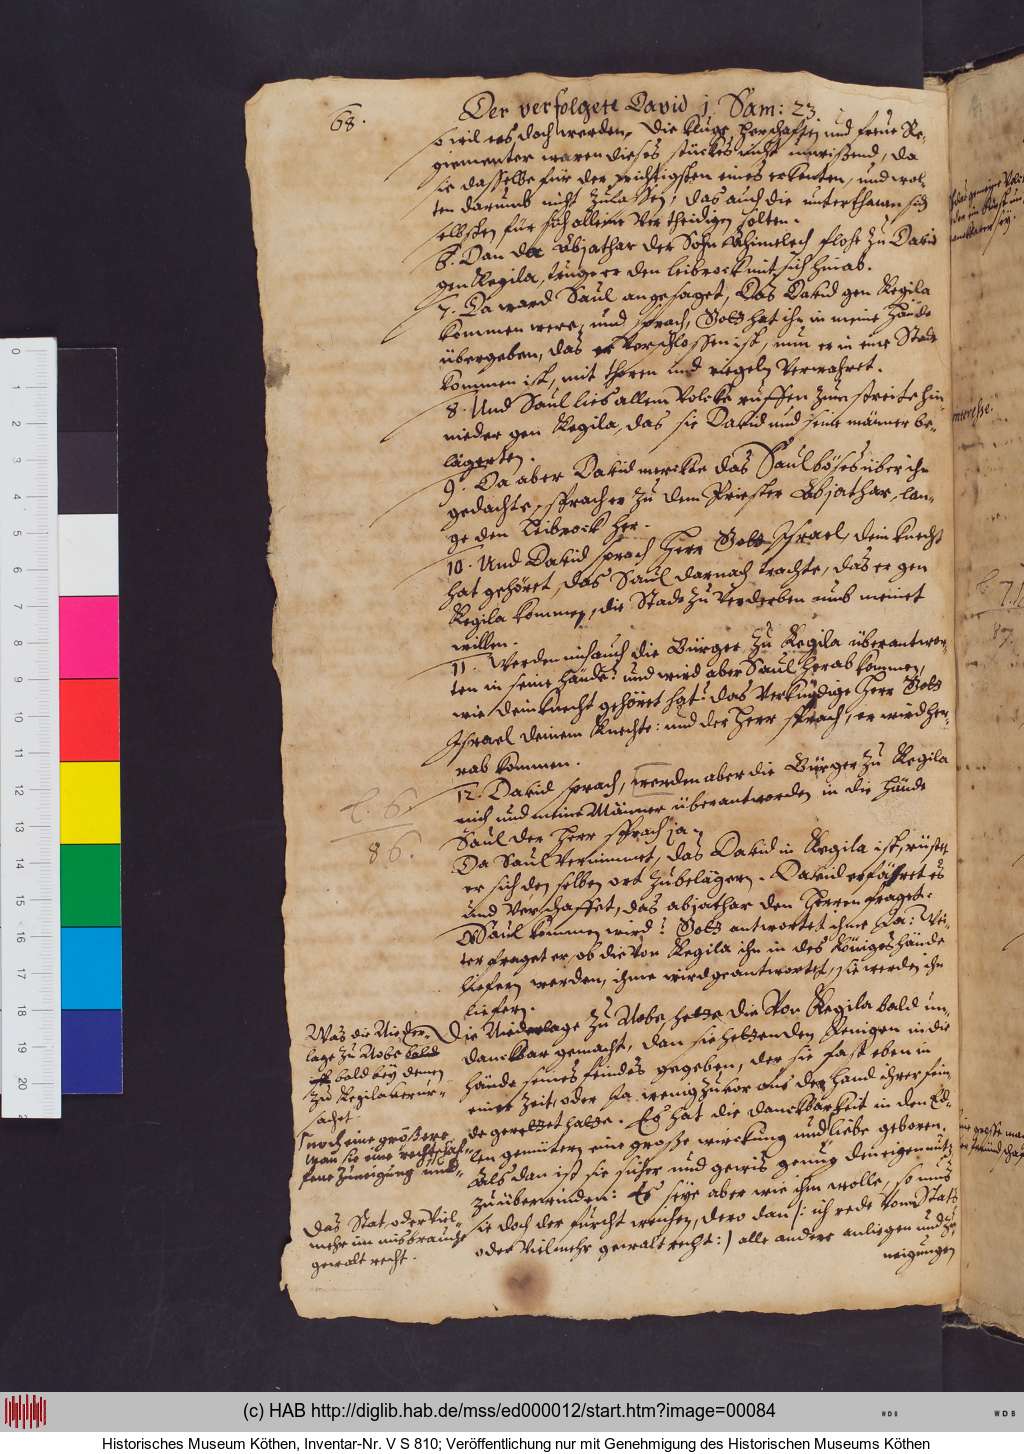 68.
Der verfolgete David 1. Sam: 23
so viel es doch werden. Die kluge Herschafften und freue Re-
gimenter waren dieses stückes nicht unwißend, da
sie dasselbe für der wichtigsten eines erkenten, und wol-
ten darumb nicht zulaßen, das auch die unterthanen sich
selbsten für sich alleine vertheidigen solten.
6. Dan da Abjathar der Sohn Ahimelech flohe zu David
gen Kegila, truge er den leibrock mit sich hinab.
7. Da ward Saul angesaget, das David gen Kegila
kommen were, und sprach, Gott hat ihn in meine Hände
übergeben, das er verschloßen ist, nun er in eine Stadt
kommen ist, mit thoren und riegeln verwahret.
8. Und Saul lies allem Volcke ruffen zum streite hin
nieder gen Kegila, das sie David und seine männer be-
lägerten.
9. Da aber David merckte das Saul böses über ihn
gedachte, sprach er zu dem Priester Abjathar, lan-
ge den Leibrock her.
10. Und David sprach Herr Gott Israel, dein knecht
hat gehöret, das Saul darnach trachte, das er gen
Kegila komme, die Stadt zu verderben umb meinet
willen.
11. Werden mich auch die Bürger zu Kegila überantwor-
ten in seine hände? und wird aber Saul herab kommen,
wie dein knecht gehöret hat? das verkündige Herr Gott
Israel deinem Knechte: und der Herr sprach, er wird he-
rab kommen.
12. David sprach, werden aber die Bürger zu Kegila
mich und meine Männer überantworden in die Hände
Saul der Herr sprach ja.
Da Saul vernimmet, das David in Kegila ist, rüstet
er sich den selben ort zubelägern. David erfähret es
und verschaffet, das abjathar den Herren fraget:
Ob Saul kommen wird? Gott antwortet ihme Ja: Wei-
ter fraget er, ob die von Kegila ihn in des Königes hände
liefern werden, ihme wird geantwortet, sie werden ihn
liefern.
Die Niederlage zu Nobe, hette die von Kegila bald un-
danckbar gemacht, dan sie hetten den Jenigen in die
hände seines feindes gegeben, der sie fast eben in
einer Zeit, oder Ja wenig zuvor aus der hand ihrer fein-
de gerettet hatte. Es hat die danckbarkeit in den Ed-
len gemütern eine große wirckung und liebe geboren.
Als dan ist sie sicher und gewis genüg den eigennutz
zuüberwinden: Es seye aber wie ihm wolle, so mus
sie doch der furcht weichen, dero dan /: ich rede vom Stats
oder vielmehr gewalt recht:/ alle andere anliegen und zu-
neigungen
Was die Nieder-
lage zu Nobe bald
bald bey denen
zu Kegila verur-
sachet.
noch eine größere
wan sie eine rechtschaf-
fene Zuneigung und
Das Stat, oder viel-
mehr im misbrauche
gewalt recht.
86.
interesse.
87.
0
1
2
3
4
5
6
7
8
9
10
11
12
13
14
15
16
17
18
19
20
(c) HAB http://diglib.hab.de/mss/ed000012/start.htm?image=00084
WDB
WDB
Historisches Museum Köthen, Inventar-Nr. V S 810; Veröffentlichung nur mit Genehmigung des Historischen Museums Köthen